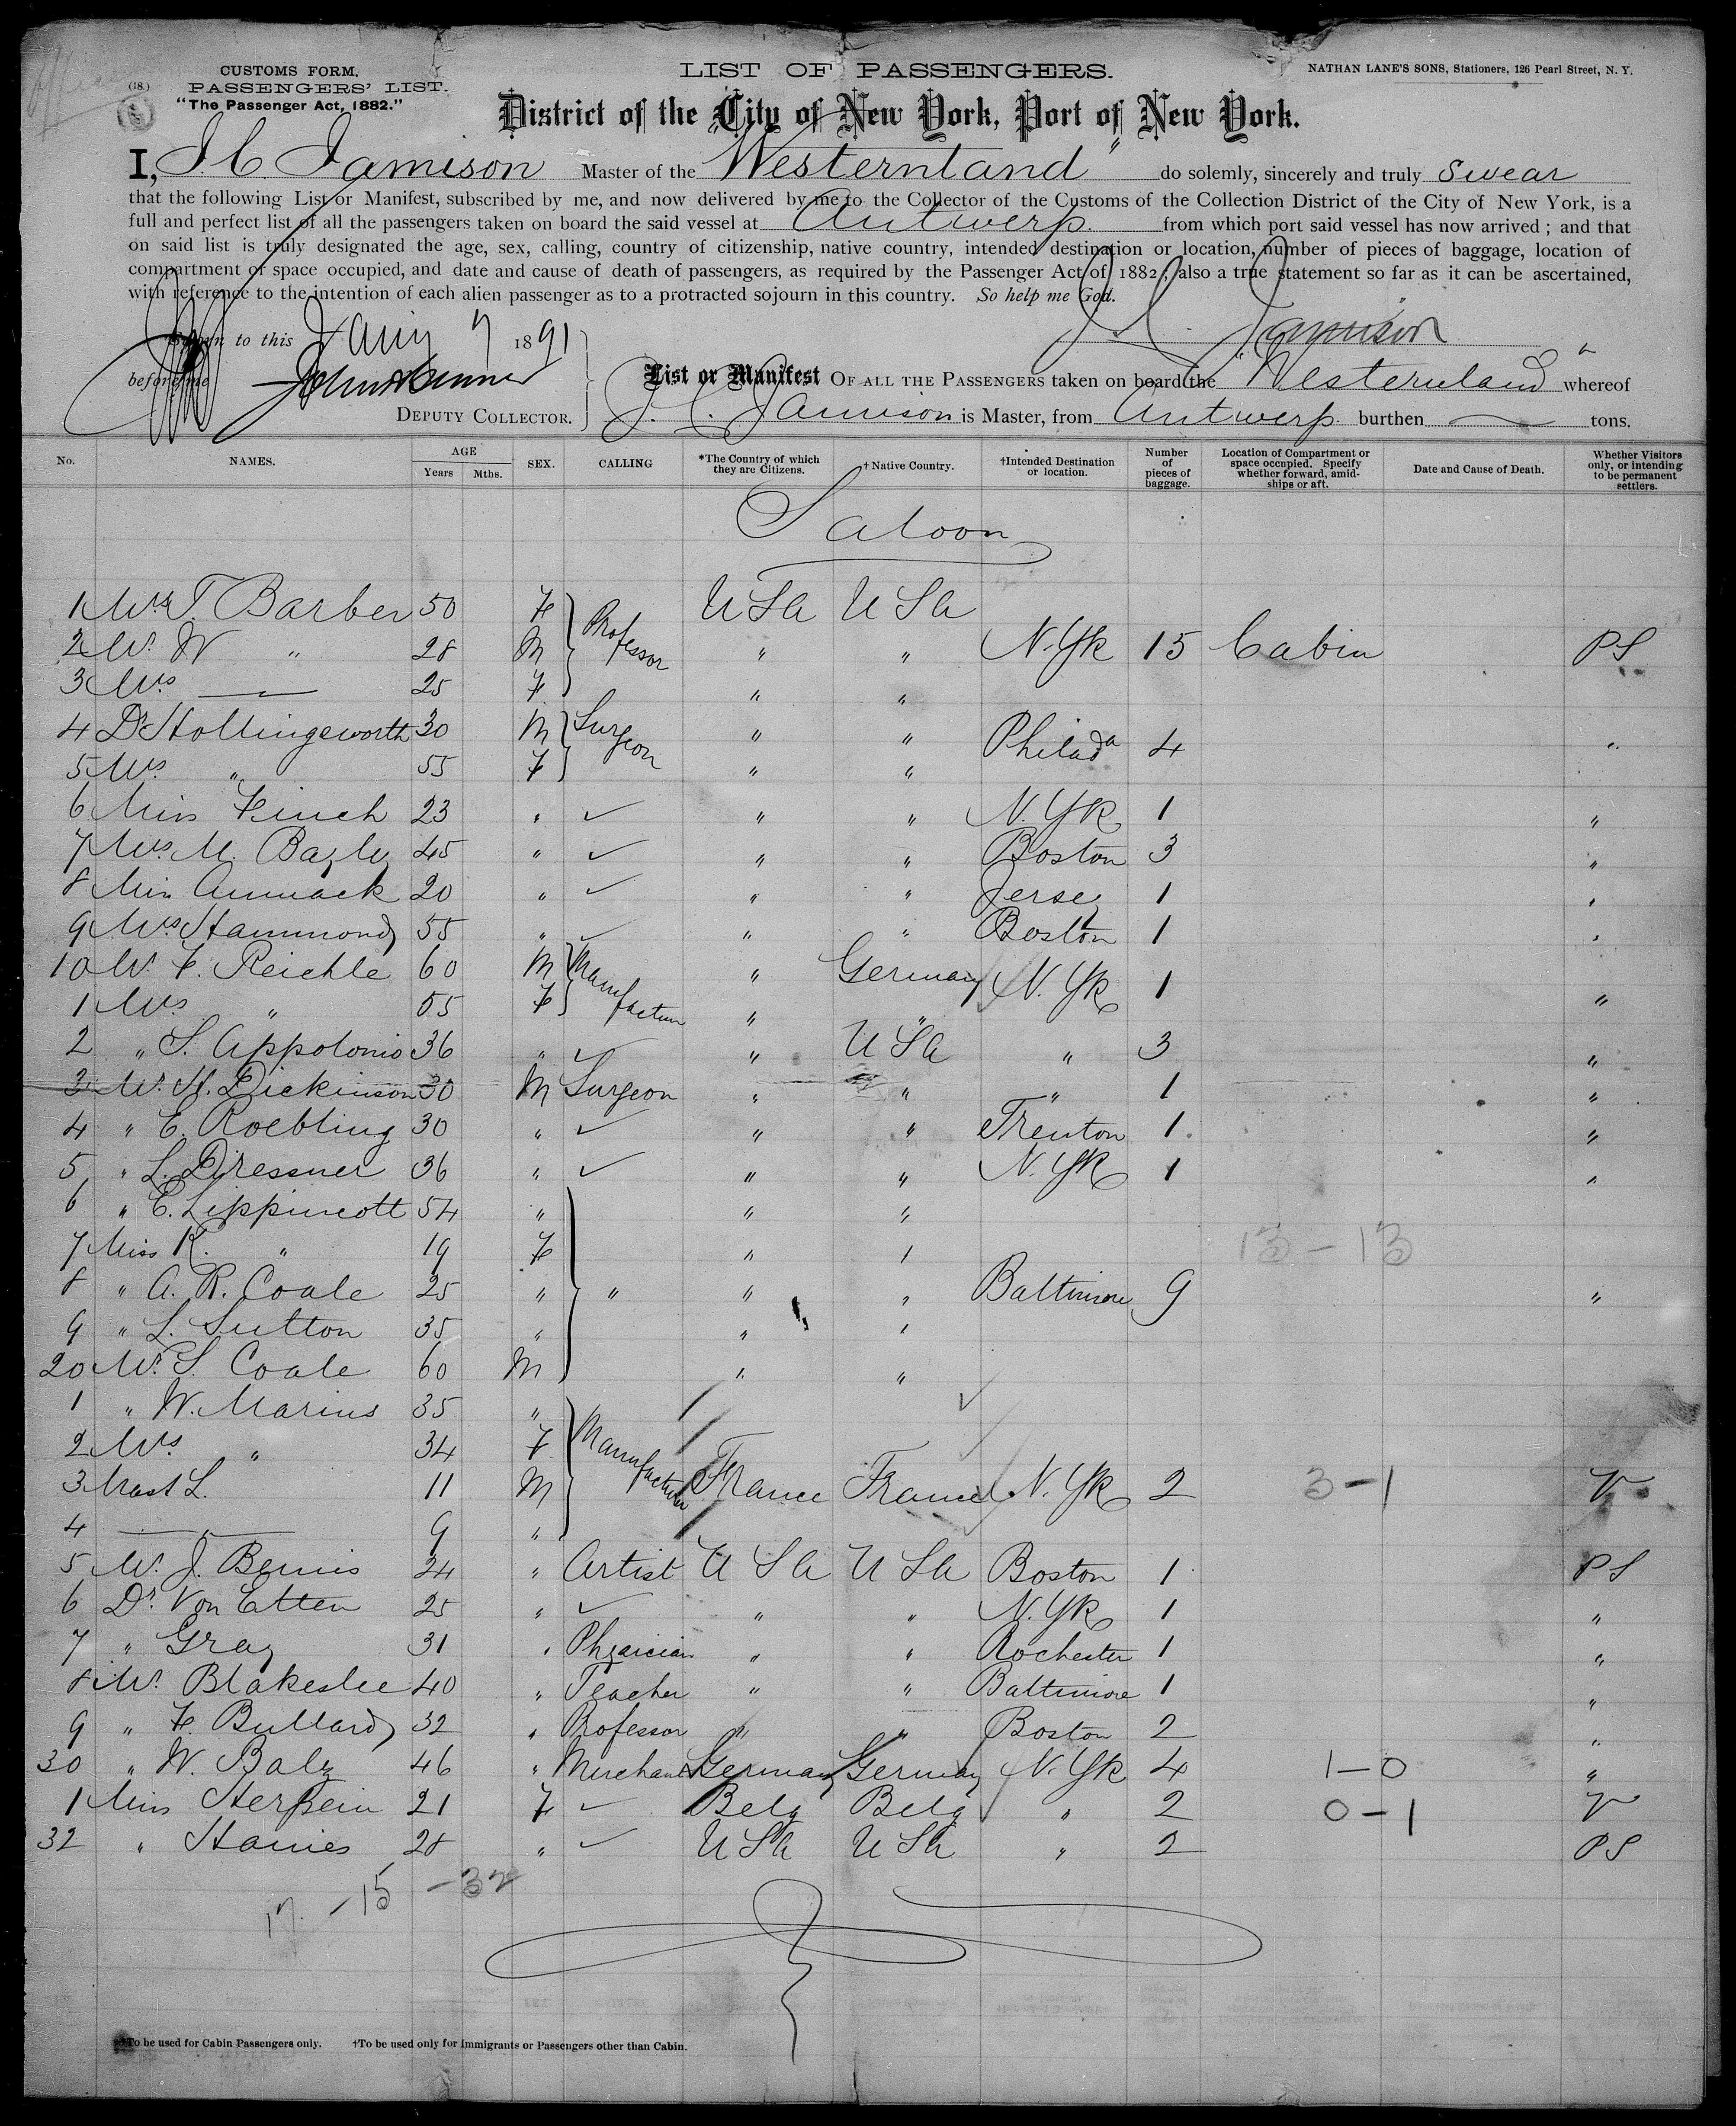 CUSTOMS FORM.
(18.) PASSENGERS' LIST.
"The Passenger Act, 1882."
LIST OF PASSENGERS.
NATHAN LANE'S SONS, Stationers, 126 Pearl Street, N. Y.
District of the City of New York, Port of New York.
I, J. C. Jamison Master of the "Westernland" do solemnly, sincerely and truly swear
that the following List or Manifest, subscribed by me, and now delivered by me to the Collector of the Customs of the Collection District of the City of New York, is a
full and perfect list of all the passengers taken on board the said vessel at Antwerp. from which port said vessel has now arrived ; and that
on said list is truly designated the age, sex, calling, country of citizenship, native country, intended destination or location, number of pieces of baggage, location of
compartment or space occupied, and date and cause of death of passengers, as required by the Passenger Act of 1882 ; also a true statement so far as it can be ascertained,
with reference to the intention of each alien passenger as to a protracted sojourn in this country. So help me God.
J. C. Jamison
Sworn to this Jany 7 1891
before me
List or Manifest OF ALL THE PASSENGERS taken on board the "Westernland" whereof
DEPUTY COLLECTOR. J. C. Jamison is Master, from Antwerp burthen — tons.
No. NAMES. AGE Years Mths. SEX. CALLING *The Country of which they are Citizens. † Native Country. †Intended Destination or location. Number of pieces of baggage. Location of Compartment or space occupied. Specify whether forward, amid-ships or aft. Date and Cause of Death. Whether Visitors only, or intending to be permanent settlers.
Saloon
1 Mrs T. Barber 50 F Professor USA USA
2 Mr. W " 28 M " " N. Yk 15 Cabin PS
3 Mrs — 25 F " "
4 Dr Hollingsworth 30 M Surgeon " " Philada 4 "
5 Mrs " 55 F " "
6 Miss Finch 23 " ✓ " " N. Yk 1 "
7 Mrs. M. Bayly 45 " ✓ " " Boston 3 "
8 Miss Ammack 20 " ✓ " " Jersey 1 "
9 Mrs Hammond 55 " ✓ " " Boston 1 "
10 Mr. F. Reichle 60 M Manufacturer " Germany N. Yk 1 "
1 Mrs " 55 F " "
2 " S. Appolonio 36 " ✓ " USA " 3 "
3 Mr. H. Dickinson 30 M Surgeon " " " 1 "
4 " E. Roebling 30 " ✓ " " Trenton 1 "
5 " L. Dressner 36 " ✓ " " N. Yk 1 "
6 " E. Lippincott 54 " " "
7 Miss K. " 19 F " " 13 – 13
8 " A. R. Coale 25 " " " " Baltimore 9 "
9 " L. Sutton 35 " " "
20 Mr. S. Coale 60 M " "
1 " W. Marius 35 "
2 Mrs " 34 F Manufacturer
3 Mast L. 11 M France France N. Yk 2 3 – 1 V
4 — 9 "
5 Mr. J. Bemis 24 " Artist USA USA Boston 1 PS
6 Dr. Von Etten 25 " ✓ " " N. Yk 1 "
7 " Gray 31 " Physician " " Rochester 1 "
8 Mr. Blakeslee 40 " Teacher " " Baltimore 1 "
9 " F. Bullard 32 " Professor " " Boston 2 "
30 " W. Balz 46 " Merchant Germany Germany N. Yk 4 1 – 0 "
1 Miss 21 F ✓ Belg Belg " 2 0 – 1 V
32 " Hanies 28 " ✓ USA USA " 2 PS
17 – 15 – 32
*To be used for Cabin Passengers only. †To be used only for Immigrants or Passengers other than Cabin.